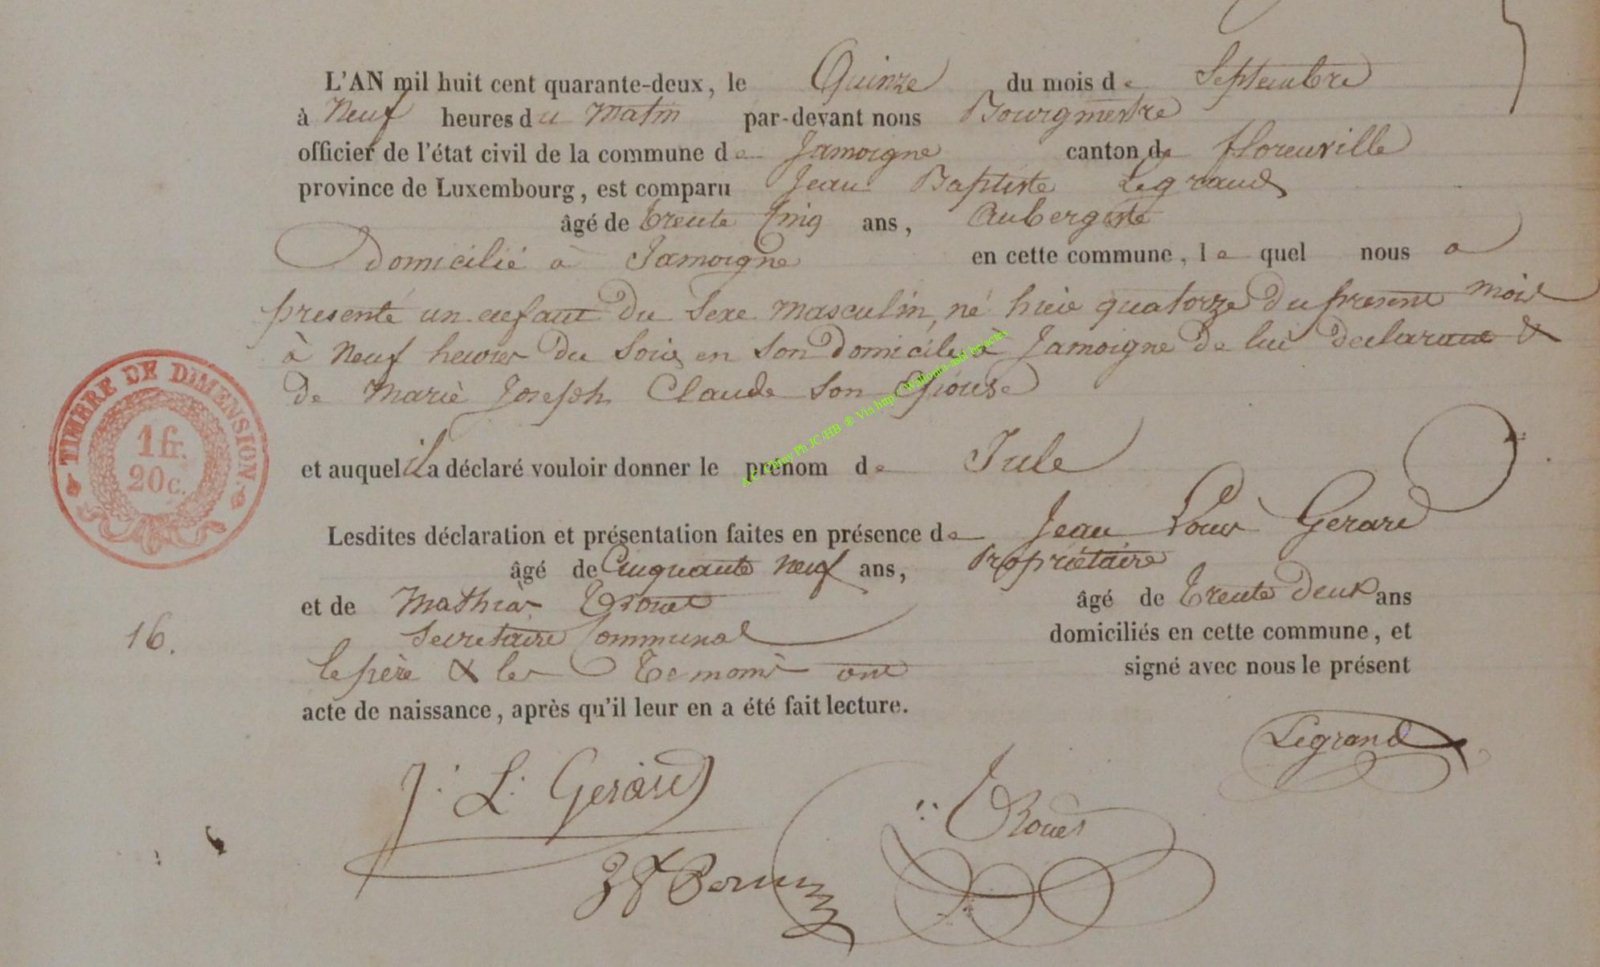 L'AN mil huit cent quarante-deux, le Quinze du mois de Septembre
à Neuf heures du Matin par-devant nous Bourgmestre
officier de l'état civil de la commune de Jamoigne canton de florenville
province de Luxembourg, est comparu Jean Baptiste Legrand
âgé de trente Cinq ans, Aubergiste
domicilié à Jamoigne en cette commune, le quel nous a
presenté un enfant du sexe masculin, né hier quatorze du present mois
à Neuf heures du soir, en son domicile à Jamoigne de lui declarant &
de Marie Joseph Claude son Epouse
et auquel il a déclaré vouloir donner le prénom de Jule
Lesdites déclaration et présentation faites en présence de Jean Louis Gerard
âgé de Cinquante neuf ans, Propriétaire
et de Mathias âgé de Trente deux ans
Secretaire Communal domiciliés en cette commune, et
le père & les Temoins ont signé avec nous le présent
acte de naissance, après qu'il leur en a été fait lecture.
TIMBRE DE DIMENSION
1 fr.
20 c.
16.
Legrand
J. L. Gerard